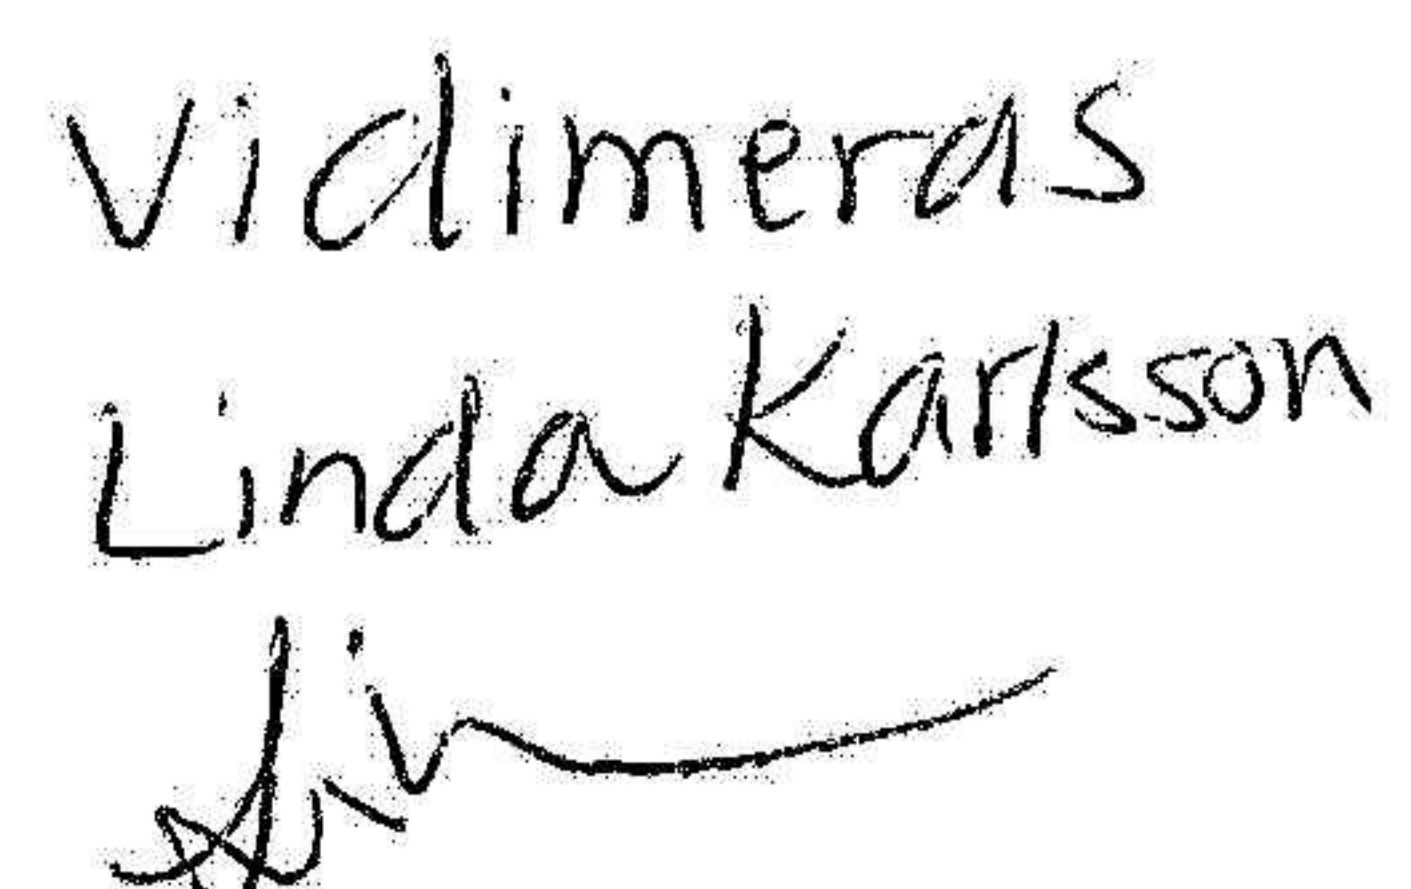 Vidimeras
Linda Karlsson